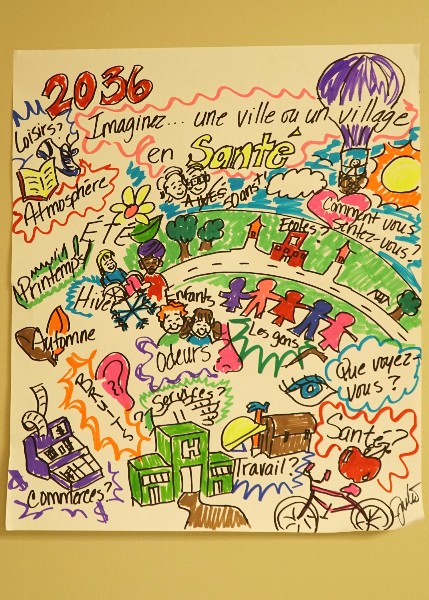 2036
Imaginez... une ville ou un village
en Santé
Loisirs?
Atmosphère
Comment vous
sentez-vous?
Été
Écoles?
Printemps
Hiver
Enfants
Les gens
Automne
Odeurs
Que voyez-
vous?
BRUITS?
Services?
Santé?
H
Travail?
Commerces?